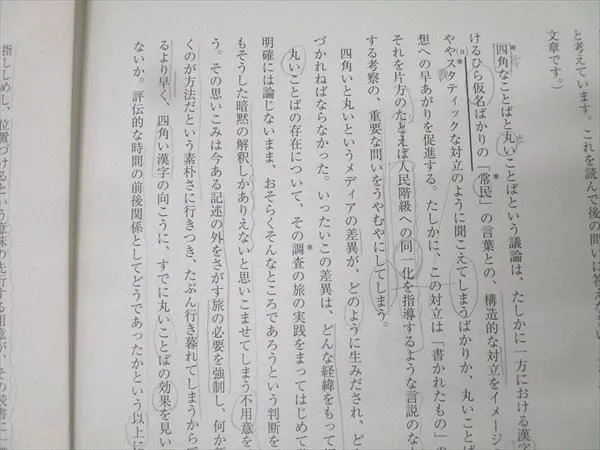 と考えています。これを読んで後の問いに答えなさい
文章です。）
四角なことばと丸いことばという議論は、たしかに一方における漢字
けるひら仮名ばかりの「常民」の言葉との、構造的な対立をイメージ
ややスタティックな対立のように聞こえてしまうばかりか、丸いことば
(a)
想への早あがりを促進する。たしかに、この対立は「書かれたもの」の
それを片方のたとえば人民階級への同一化を指導するような言説のな
する考察の、重要な問いをうやむやにしてしまう。
四角いと丸いというメディアの差異が、どのように生みだされ、ど
づかれねばならなかった。いったいこの差異は、どんな経緯をもって
丸いことばの存在について、その調査の旅の実践をまってはじめて
明確には論じないまま、おそらくそんなところであろうという判断を
もそうした暗黙の解釈しかありえないと思いこませてしまう不用意を
う。その思いこみは今ある記述の外をさがす旅の必要を強制し、何か
くのが方法だという素朴さに行きつき、たぶん行き暮れてしまうから
るより早く、四角い漢字の向こうに、すでに丸いことばの効果を見い
ないか。評伝的な時間の前後関係としてどうであったかという以上に
指ししめし、位置づけるという意味の先行する用意が、その読書に